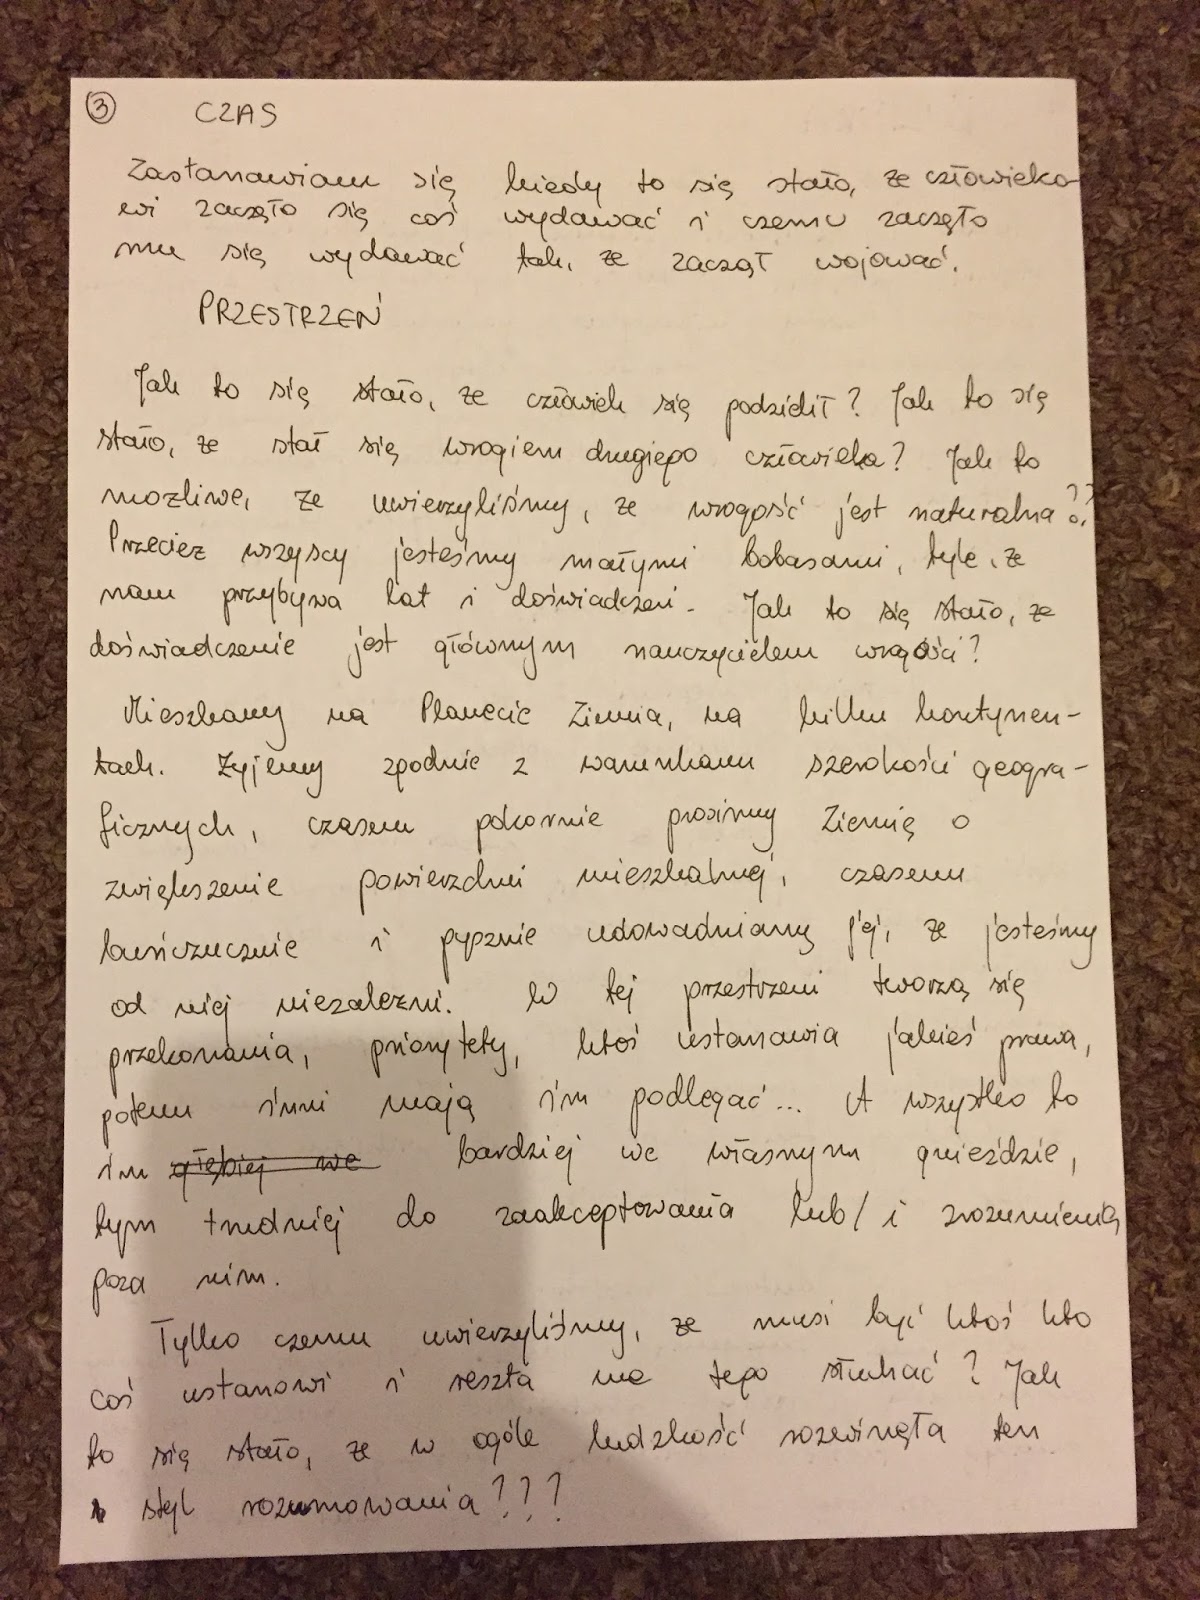 ③ CZAS
Zastanawiam się kiedy to się stało, że człowieko-
wi zaczęło się coś wydawać i czemu zaczęło
mu się wydawać tak, że zaczął wojować.
PRZESTRZEŃ
Jak to się stało, że człowiek się podzielił? Jak to się
stało, że stał się wrogiem drugiego człowieka? Jak to
możliwe, że uwierzyliśmy, że wrogość jest naturalna??
Przecież wszyscy jesteśmy małymi bobasami, tyle, że
nam przybywa lat i doświadczeń. Jak to się stało, że
doświadczenie jest głównym nauczycielem wrogości?
Mieszkamy na Planecie Ziemia, na kilku kontynen-
tach. Żyjemy zgodnie z warunkami szerokości geogra-
ficznych, czasem pokornie prosimy Ziemię o
zwiększenie powierzchni mieszkalnej, czasem
buńczucznie i pysznie udowadniamy jej, że jesteśmy
od niej niezależni. W tej przestrzeni tworzą się
przekonania, priorytety, ktoś ustanawia jakieś prawa,
potem inni mają im podlegać... A wszystko to
im głębiej we bardziej we własnym gnieździe,
tym trudniej do zaakceptowania lub/i zrozumienia
poza nim.
Tylko czemu uwierzyliśmy, że musi być ktoś kto
coś ustanowi i reszta ma tego słuchać? Jak
to się stało, że w ogóle ludzkość rozwinęła ten
styl rozumowania???